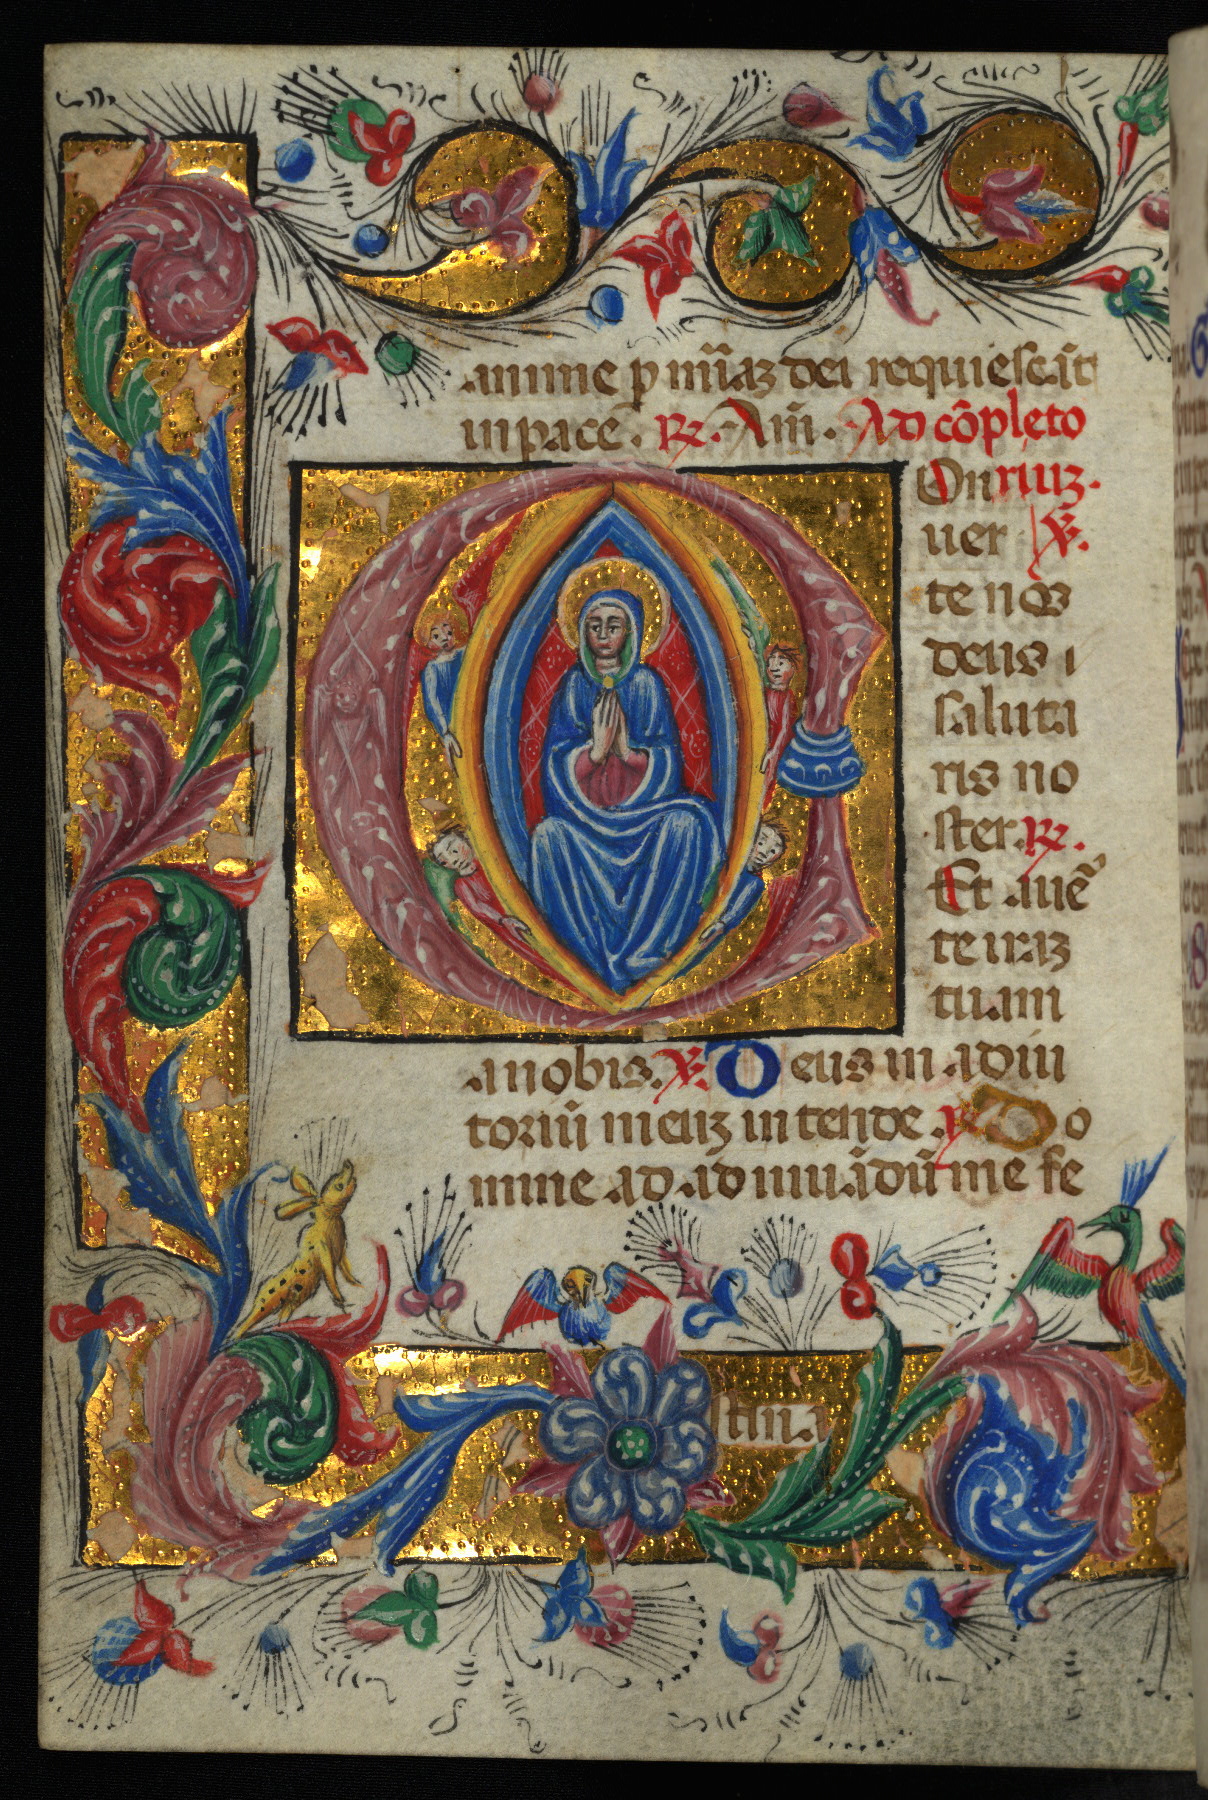 anime p mīaz dei requiescāt
in pace. R. Am̄. Ad cōpleto
Onriuz.
uer V.
te nos
deus i
saluta
ris no
ster. R.
Et auē
te iraz
tuam
a nobis. V. Deus in adiu
toriū meuz intende. R. Do
mine ad adiuuādū me fe
stina